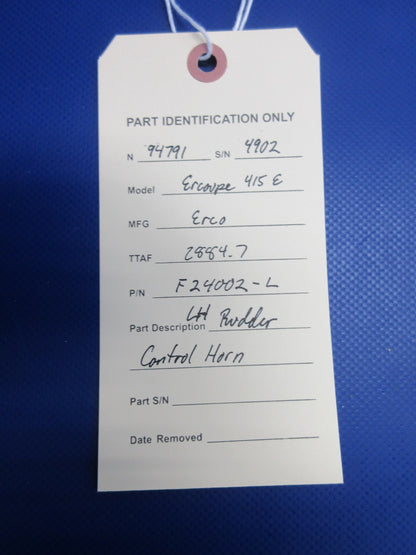 PART IDENTIFICATION ONLY
N 94791 S/N 4902
Model Ercoupe 415 E
MFG Erco
TTAF 2884.7
P/N F24002-L
Part Description LH Rudder
Control Horn
Part S/N
Date Removed